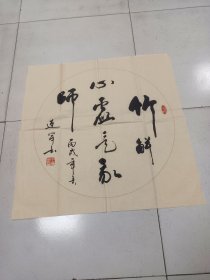 竹解
心虚是我
师
丙戌年